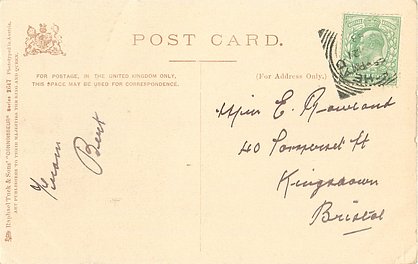 POST CARD.
FOR POSTAGE, IN THE UNITED KINGDOM ONLY,
THIS SPACE MAY BE USED FOR CORRESPONDENCE.
(For Address Only.)
Miss E. Rowland
40 Somerset St
Kingsdown
Bristol
From
Bert
Raphael Tuck & Sons' "CONNOISSEUR" Series 2547
ART PUBLISHERS TO THEIR MAJESTIES THE KING AND QUEEN.